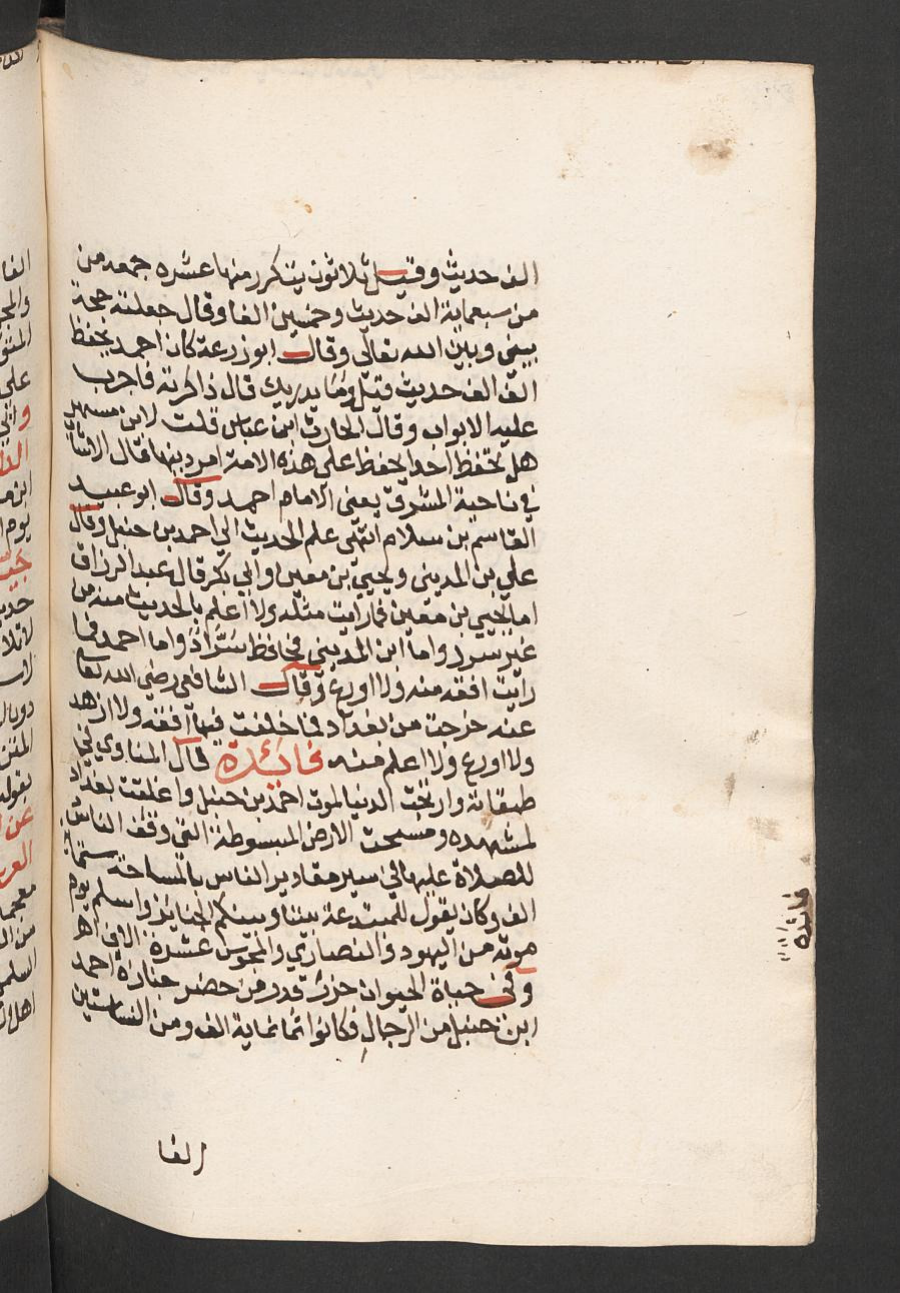 الف حديث وقيل ثلاثون يتكرر منها عشره جمعه من
من سبعماية الف حديث وخمسين الفا وقال جعلته حجة
بيني وبين الله تعالى وقال ابو زرعة كان احمد يحفظ
الف الف حديث فقيل وما يدريك قال ذاكرته فاجرب
عليه الابواب وقال الحارث ابن عباس قلت لابن مسهر
هل تحفظ احدا يحفظ على هذه الامة امر دينها قال لا شابا
في ناحية المشرق يعني الامام احمد وقال ابو عبيد
القاسم بن سلام انتهى علم الحديث الى احمد بن حنبل وقال
علي بن المديني ويحيى بن معين وابي بكر قال عبد الرزاق
اما يحيى بن معين فما رايت مثله ولا اعلم بالحديث منه من
غير سرد واما ابن المديني فحافظ سراد واما احمد فما
رايت افقه منه ولا اورع وقال الشافعي رضي الله تعالى
عنه خرجت من بغداد فما خلفت فيها افقه ولا ازهد
ولا اورع ولا اعلم منه فائدة قال المناوي في
طبقاته وارتجت الدنيا لموت احمد بن حنبل واغلقت بغداد
لمشهده ومسحت الارض المبسوطة التي وقف الناس
للصلاة عليها في اسير مقادير الناس بالمساحة ستماية
الف وكان يقول للمبتدعة بيننا وبينكم الجنايز واسلم يوم
موته من اليهود والنصارى والمجوس عشرة الاف اهـ
وفي حياة الحيوان حزر قدر من حضر جنازة احمد
ابن حنبل من الرجال فكانوا ثمانماية الف ومن النسا ستين
الفا
فائدة